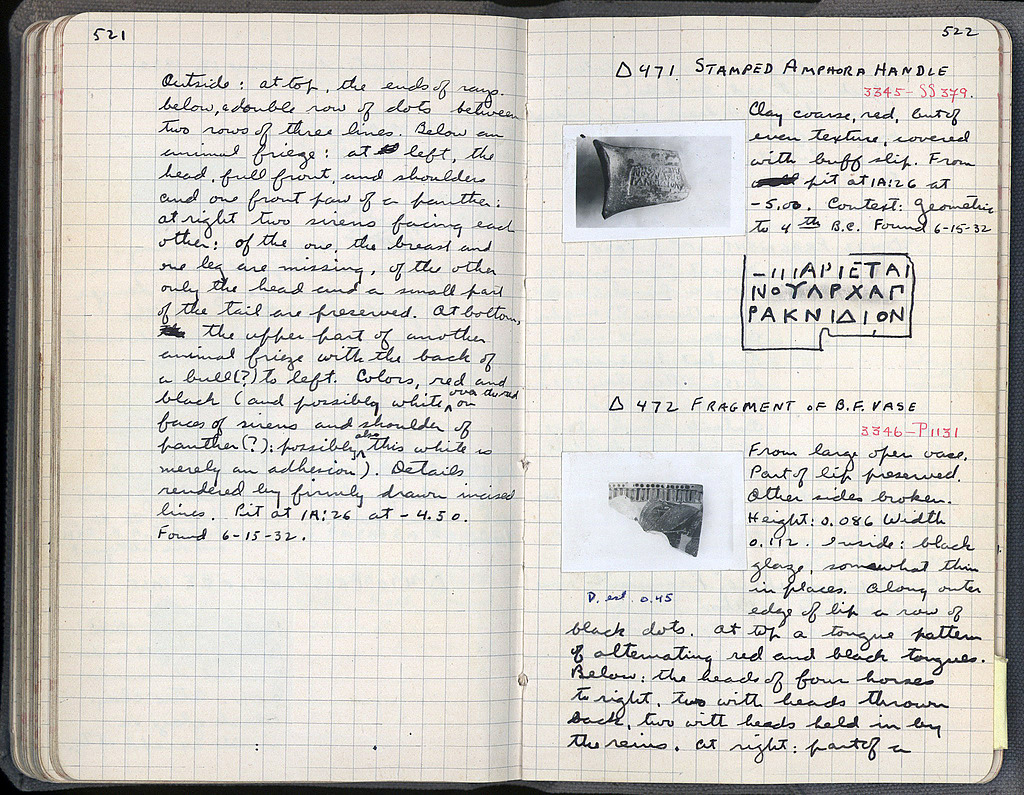 521
Outside: at top, the ends of rays.
below, a double row of dots between
two rows of three lines. Below an
animal frieze: at left, the
head, full front, and shoulders
and one front paw of a panther:
at right two sirens facing each
other: of the one, the breast and
one leg are missing, of the other
only the head and a small part
of the tail are preserved. At bottom,
the upper part of another
animal frieze with the back of
a bull(?) to left. Colors, red and
black (and possibly white, over the red on
faces of sirens and shoulder of
panther(?): possibly also this white is
merely an adhesion). Details
rendered by firmly drawn incised
lines. Pit at 1A:26 at -4.50.
Found 6-15-32.
522
Δ 471 STAMPED AMPHORA HANDLE
3345-SS379.
Clay coarse, red, but of
even texture, covered
with buff slip. From
pit at 1A:26 at
-5.00. Context: Geometric
to 4th B.C. Found 6-15-32
ΕΤΑΙ
ΝΟΥΛΡΧΑΓ
ΡΑΚΝΙΔΙΟΝ
Δ 472 FRAGMENT OF B.F. VASE
3346-P1131
From large open vase.
Part of lip preserved.
Other sides broken.
Height: 0.086 Width
0.112. Inside: black
glaze, somewhat thin
in places. Along outer
edge of lip a row of
D. est. 0.45
black dots. At top a tongue pattern
of alternating red and black tongues.
Below: the heads of four horses
to right, two with heads thrown
back, two with heads held in by
the reins. At right: part of a